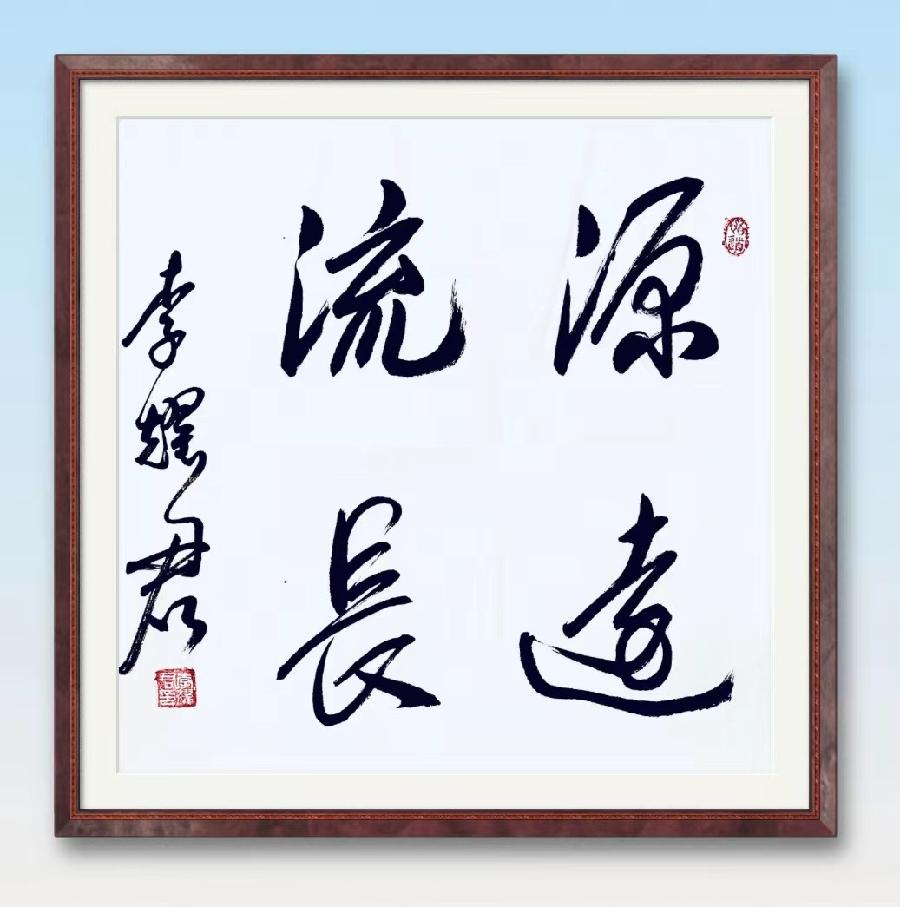 源遠
流長
李耀君